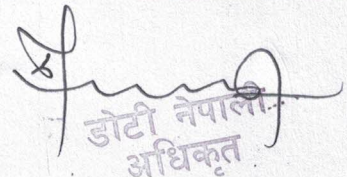 डोटी नेपाली
अधिकृत